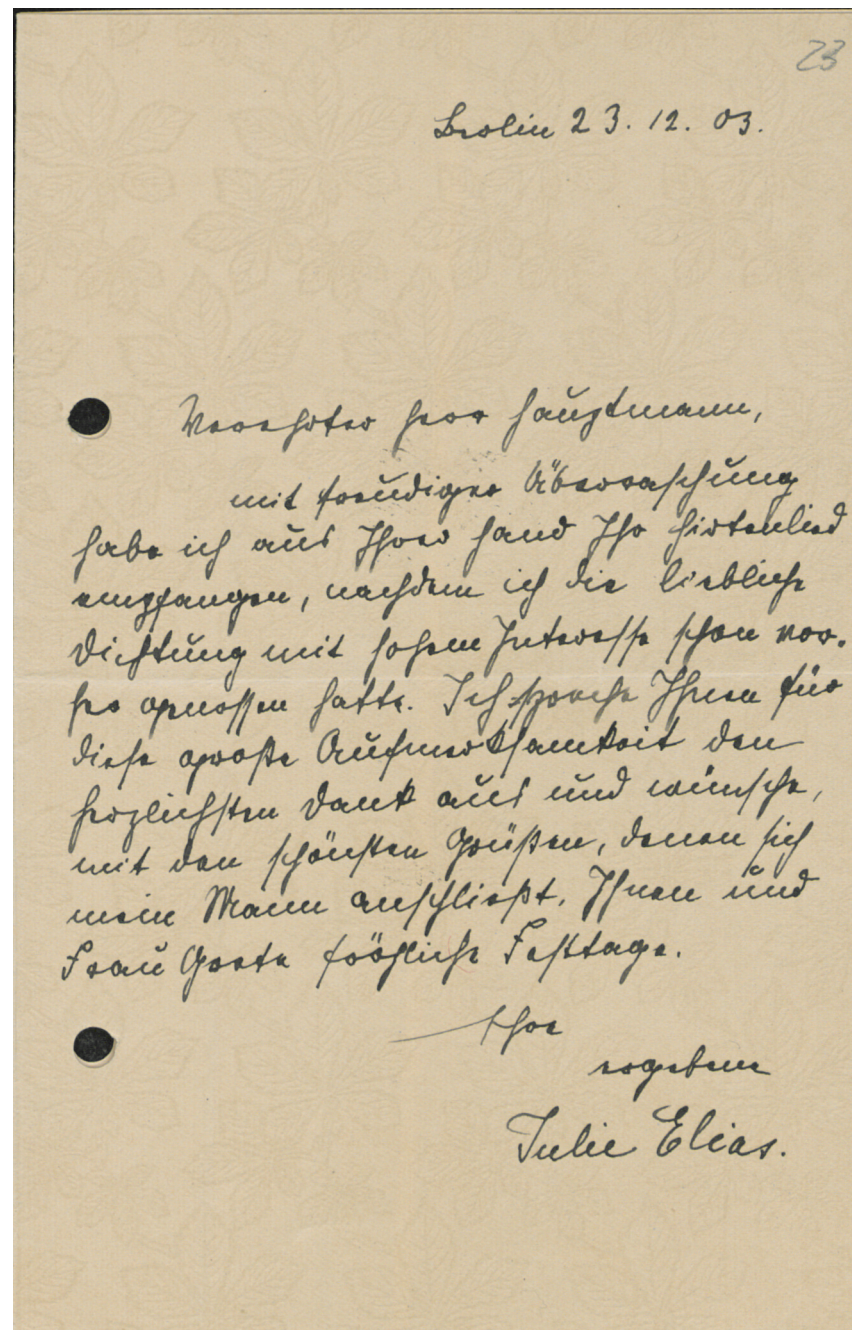 23
Berlin 23. 12. 03.
Verehrter Herr Hauptmann,
mit freudiger Überraschung
habe ich aus Ihrer Hand Ihr Hirtenlied
empfangen, nachdem ich die liebliche
Dichtung mit hohem Interesse schon vor-
her genossen hatte. Ich spreche Ihnen für
diese große Aufmerksamkeit den
herzlichsten Dank aus und wünsche,
mit den schönsten Grüßen, denen sich
mein Mann anschließt, Ihnen und
Frau Grete fröhliche Festtage.
Ihre
ergebene
Julie Elias.